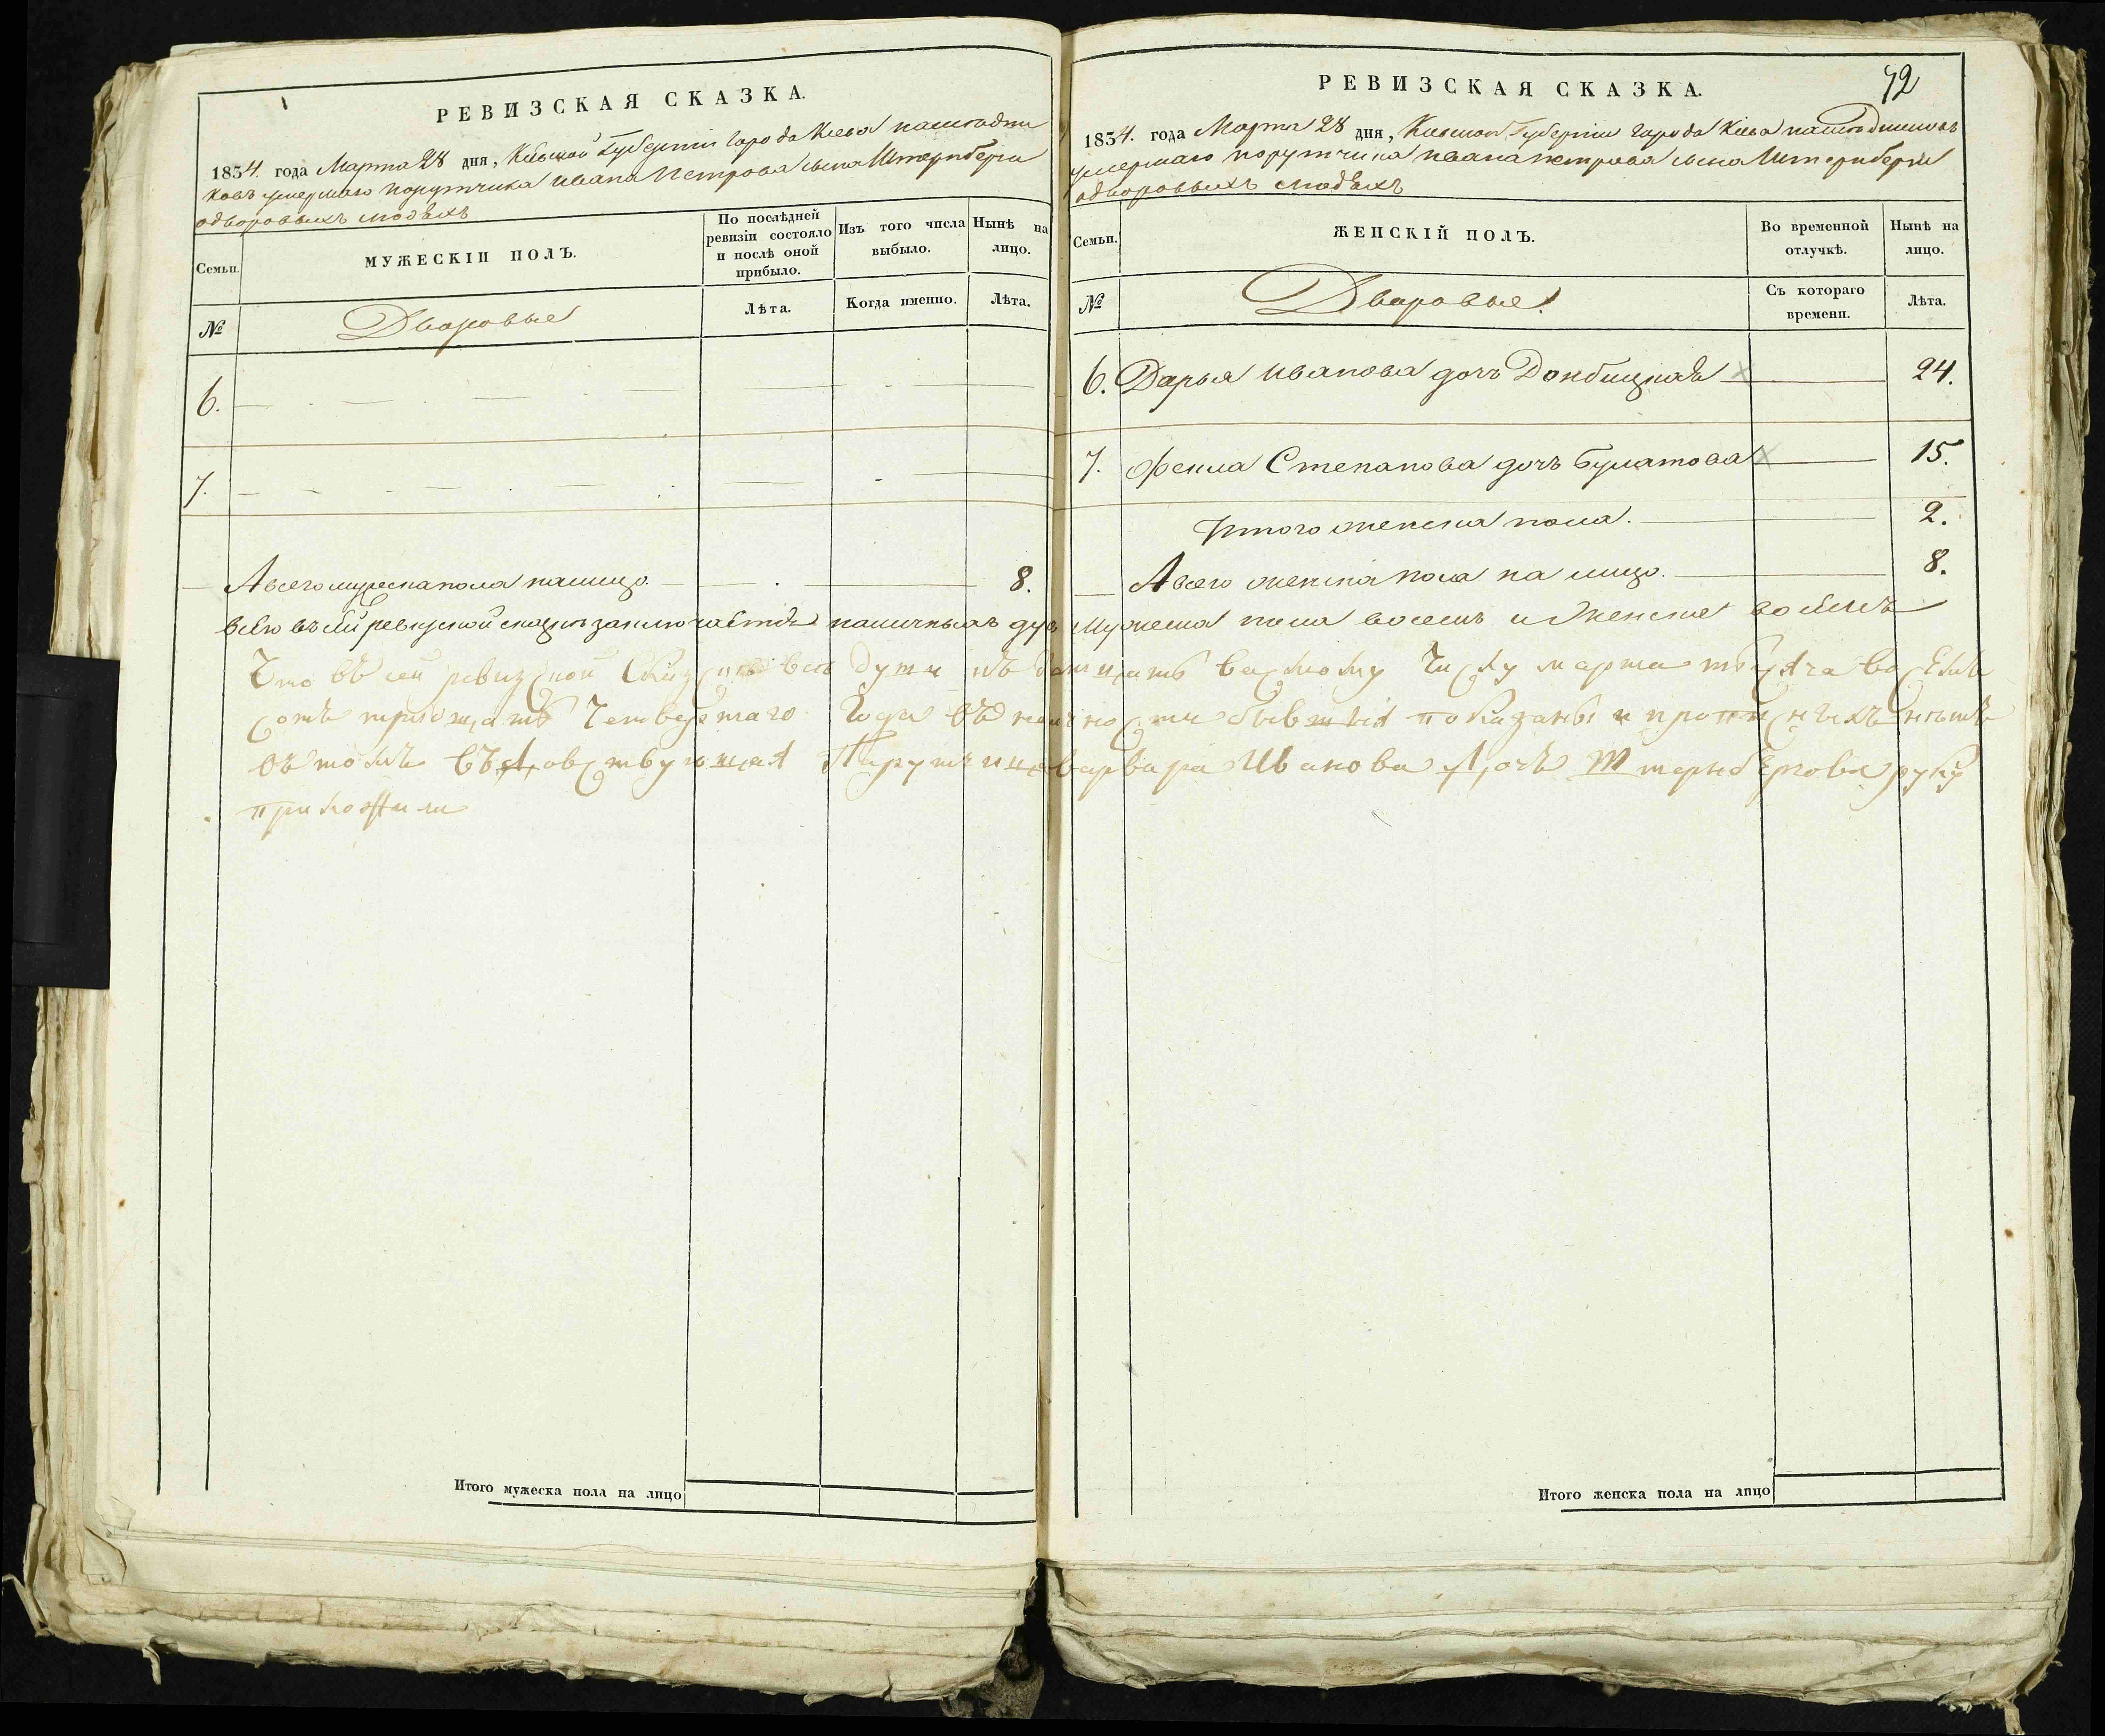 РЕВИЗСКАЯ СКАЗКА.
1834. года Марта 28 дня, Кіевской Губерніи города Кіева наследни
ковъ умершаго порутчика Ивана Петрова сына Штернберга
одворовыхъ людѣхъ
Семьи.
МУЖЕСКІЙ ПОЛЪ.
По послѣдней ревизіи состояло и послѣ оной прибыло.
Изъ того числа выбыло.
Нынѣ на лицо.
№
Дворовые
Лѣта.
Когда именно.
Лѣта.
6.
7.
А всего мужеска пола налицо. 8.
РЕВИЗСКАЯ СКАЗКА.
72
1834. года Марта 28 дня, Киевской Губерніи города Кіева наследниковъ
умершаго порутчика Ивана Петрова сына Штернберга
одворовыхъ людѣхъ
Семьи.
ЖЕНСКІЙ ПОЛЪ.
Во временной отлучкѣ.
Нынѣ на лицо.
№
Дворовые.
Съ котораго времени.
Лѣта.
6. Дарья Иванова дочь 24.
7. Фекла Степанова дочь Булатова 15.
Итого женска пола. 2.
А всего женска пола на лицо. 8.
всего въ сей ревизской сказке заключается наличныхъ душъ мужеска пола восемь и женска восемь
Что въ сей ревизской Сказке все души къ дватцать васмому Числу марта тысяча восемь
сотъ тритцать Четвертаго Года въ наличности бывшия показаны и прописныхъ нетъ
въ томъ въдовствующая Парутчица варвара Иванова Дочь Штернбергова руку
приложила
Итого мужеска пола на лицо
Итого женска пола на лицо